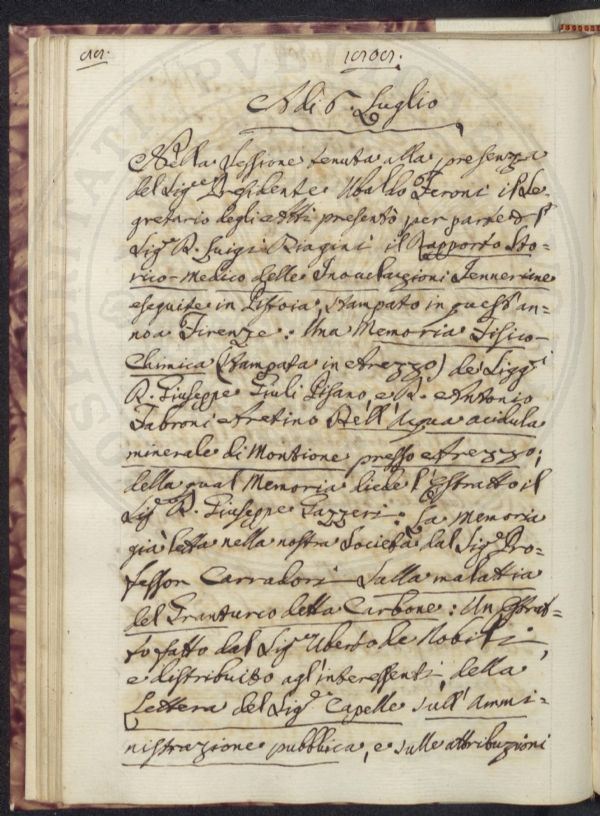 Adi 6. Luglio
Nella Sessione tenuta alla presenza
del Sig.e Presidente Ubaldo Feroni il Se-
gretario degli Atti presentò per parte del
Sig.r D. Luigi Biagini il Rapporto Sto-
rico-Medico delle Inoculazioni Jenneriane
eseguite in Pistoia, stampato in quest'an-
no a Firenze: Una Memoria Fisico-
Chimica (stampata in Arezzo) de Sigg.i
D. Giuseppe Giuli Pisano, e D. Antonio
Fabroni Aretino Dell'Acqua acidula
minerale di Montione presso Arezzo;
della qual Memoria diede l'Estratto il
Sig.r D. Giuseppe Gazzeri: La Memoria
già letta nella nostra Società dal Sig.r Pro-
fessor Carradori Sulla malattia
del Granturco detta Carbone: Un Estrat-
to fatto dal Sig.r Uberto de Nobili,
e distribuito agl'interessenti, della
Lettera del Sig.r Capelle sull'Ammi-
nistrazione pubblica, e sulle attribuzioni